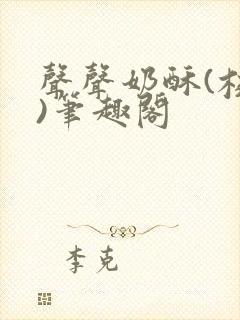 聲聲奶酥(校
)筆趣閣
李克